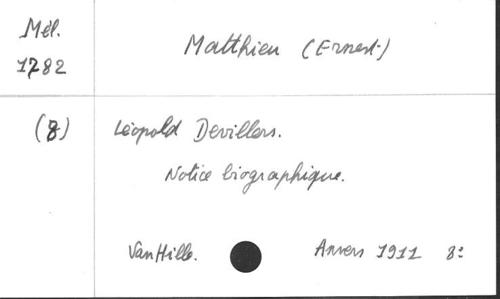 Mél. Matthieu (Ernest)
1782
(8) Léopold Devillers.
Notice biographique.
Van Hille. Anvers 1911 8º